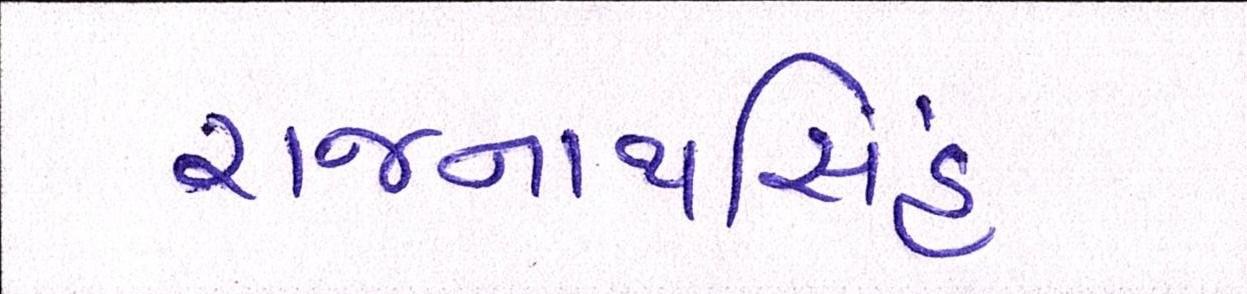 રાજનાથસિંહ